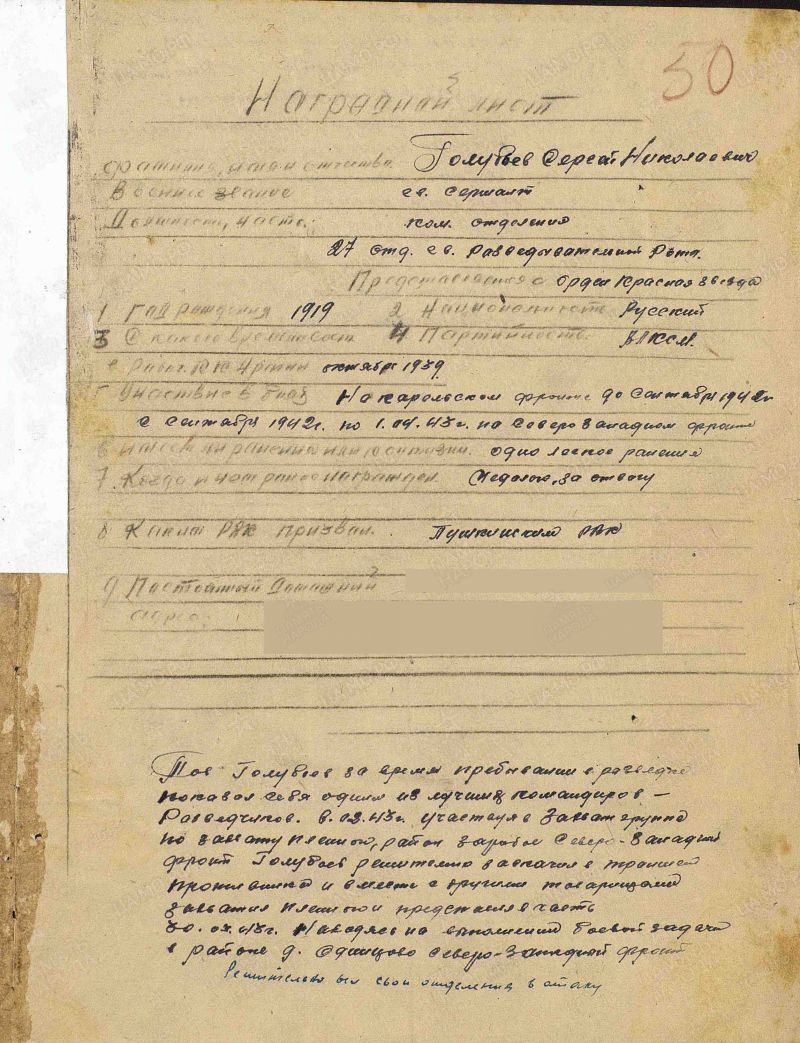 50
Наградной лист
фамилия, имя и отчество Голубев Сергей Николаевич
Военное звание гв. сержант
Должность, часть: ком. отделения
27 отд. гв. Разведывательной Роты.
Представляется о орден Красная звезда
1 Год рождения 1919 2 Национальность Русский
3 С какого времени состоит 4 Партийность. ВЛКСМ.
в РККА октября 1939
5 Участие в боях На карельском фронте до сентября 1942г
с сентября 1942г. по 1.04.43г. на Северо западном фронте
6 имеет ли ранения или контузии. одно легкое ранения
7. Когда и чем ранее награжден. Медалью, за отвагу
8 Каким РВК призван. Пушкинским РВК
9 Постоянный Домашний
адрес:
Тов Голубев за время пребывании в разведке
показал себя одним из лучших командиров –
Разведчиков. в.02.43г. участвуя в захват группе
по захвату пленного, район Северо-Западный
фронт Голубев решительно заскочил в траншею
противника и вместе с другими товарищами
захватил пленного и представлен в часть
30.03.43г. Находясь на выполнении боевой задачи
в районе д. Одинцово Северо-Западной фронт
Решительно вел свои отделения в атаку